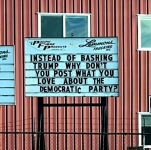 INSTEAD OF BASHING
TRUMP WHY DON'T
YOU POST WHAT YOU
LOVE ABOUT THE
DEMOCRATIC PARTY?